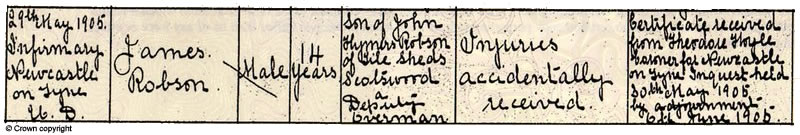 29th May 1905.
Infirmary
Newcastle
on Tyne
U. D.
James
Robson.
Male
14
Years
Son of John
Hymers Robson
of Tile Sheds
Scotswood
a
Deputy
Overman
Injuries
accidentally
received.
Certificate received
from Theodore Hoyle
Coroner for Newcastle
on Tyne Inquest held
30th May 1905
by adjournment
6th June 1905.
© Crown copyright